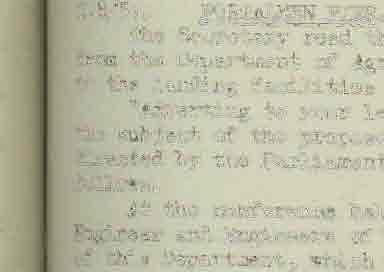 The Secretary read th
from the Department of
to the Landing Facilities
"Referring to your le
the subject of the propose
by the Parliament
follows.
At the conference hel
Engineer and Engineers of
of this Department, which